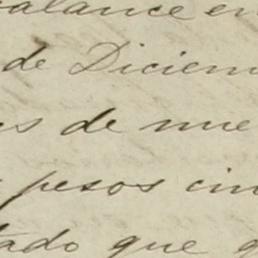 balance en
de Diciem
es de nue
pesos cin
tado que q